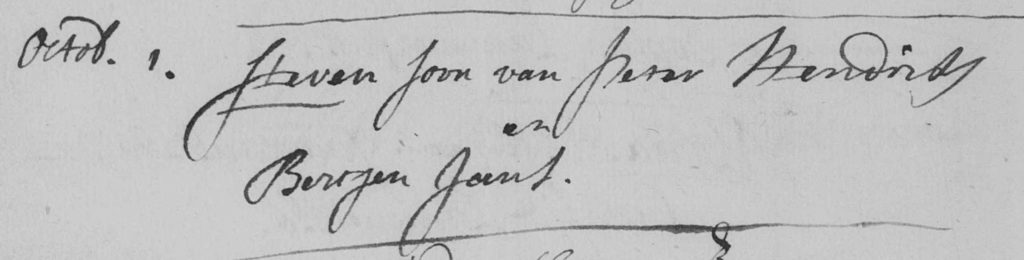 Octob. 1. Steven soon van Peter Hendriks
en
Bertjen Jans.